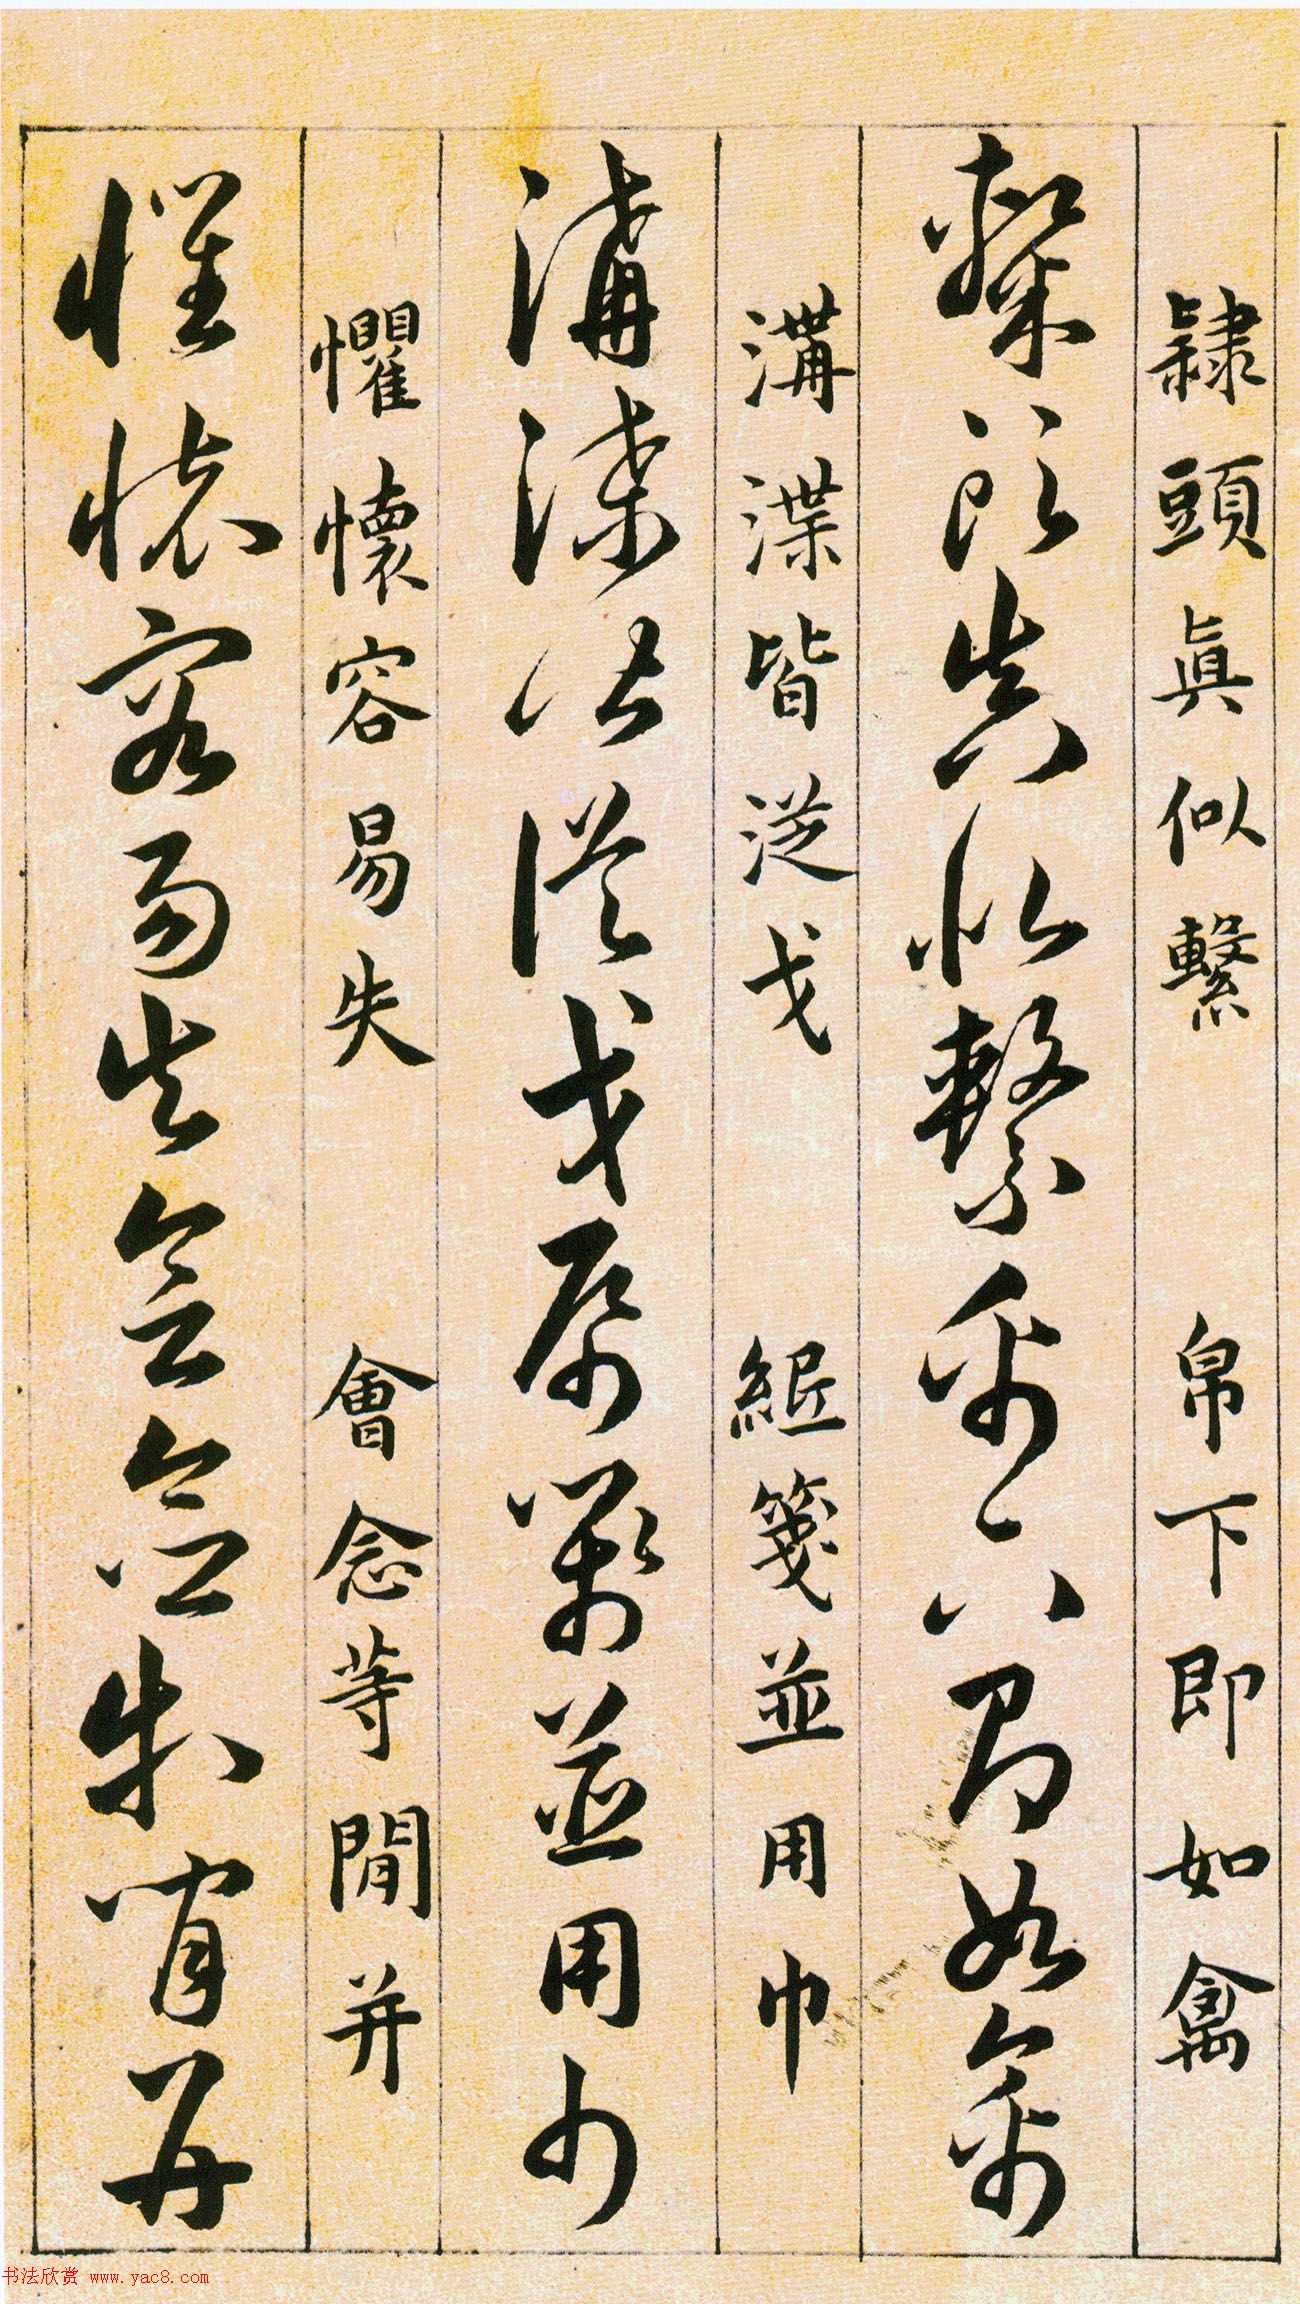 隷頭眞似繫 帛下即如禽
隷頭眞似繫帛下即如禽
溝渫皆從戈 紙箋並用巾
溝渫皆從戈帋箋並用巾
懼懷容易失 會念等閒并
懼懷容易失會念等閒并
书法欣赏 www.yac8.com